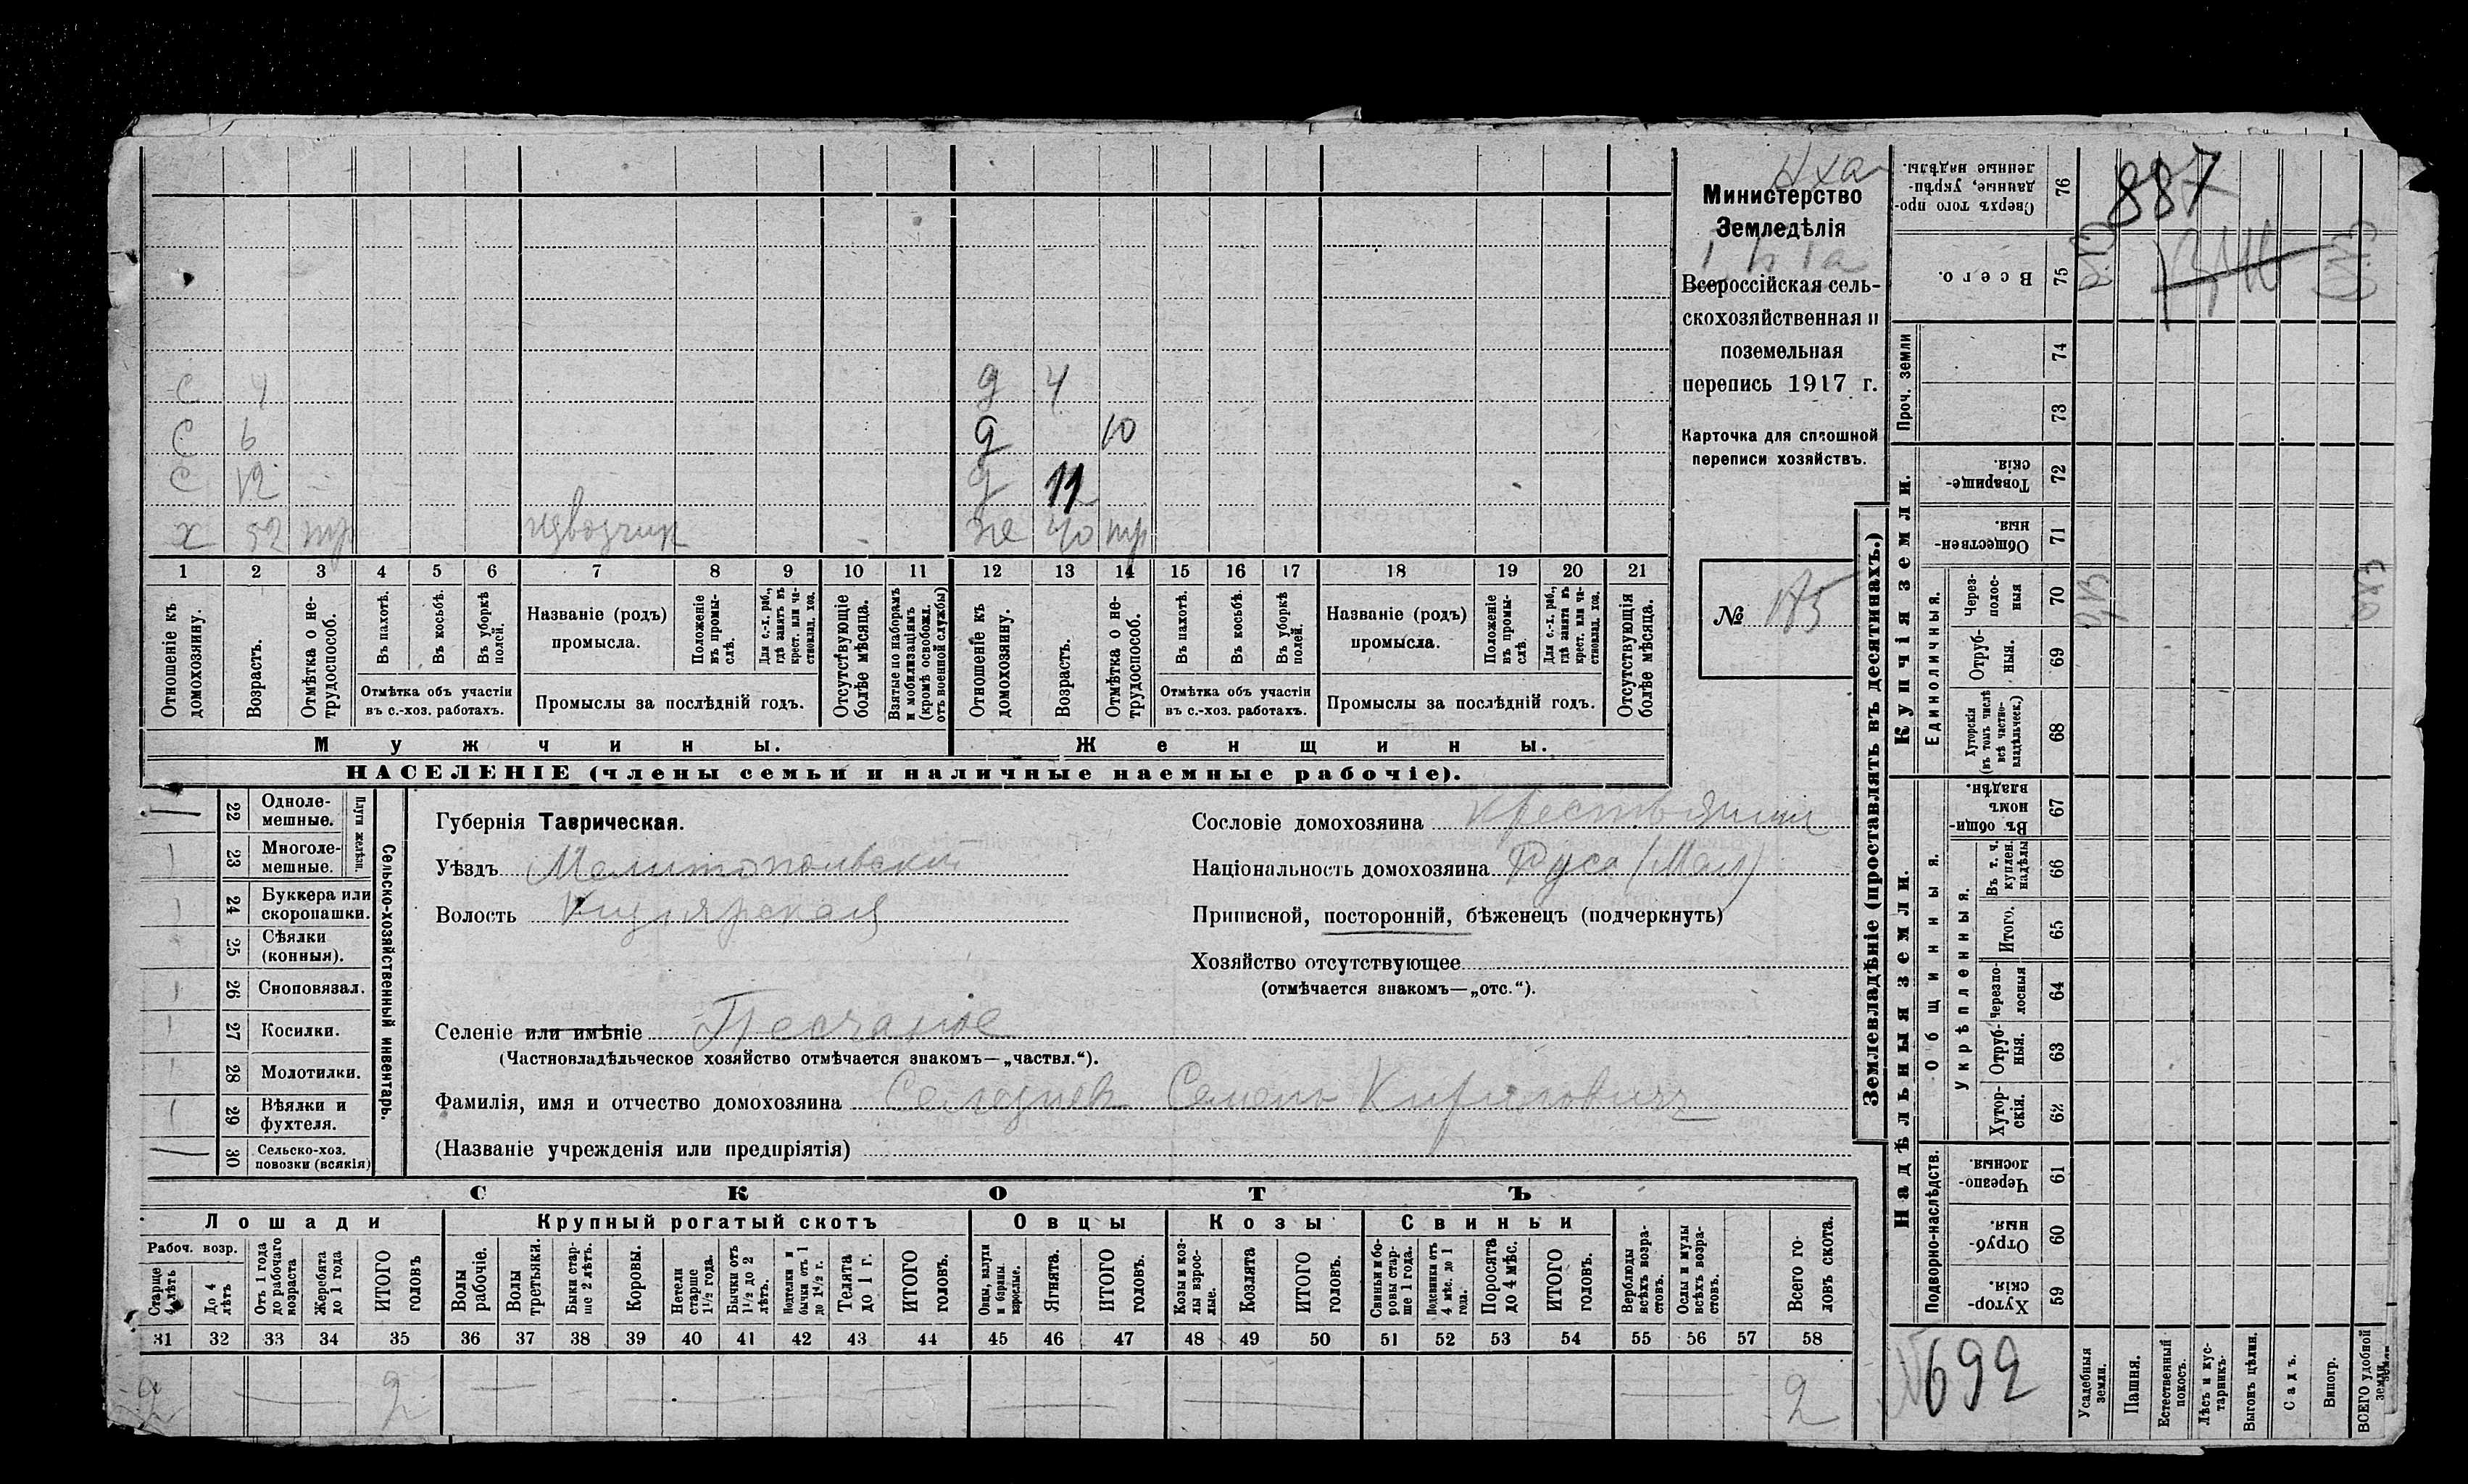 887
Министерство
Земледѣлія
Всероссійская сель-
скохозяйственная и
поземельная
перепись 1917 г.
Карточка для сплошной
переписи хозяйствъ.
№ 185
с 4 д 4
с 6 д 10
с 12 д 11
х 52 тр извозчик же 40 тр
1 2 3 4 5 6 7 8 9 10 11 12 13 14 15 16 17 18 19 20 21
Отношеніе къ домохозяину.
Возрастъ.
Отмѣтка о не-трудоспособ.
Въ пахотѣ.
Въ косьбѣ.
Въ уборкѣ полей.
Отмѣтка объ участіи въ с.-хоз. работахъ.
Названіе (родъ) промысла.
Положеніе въ промы-слѣ.
Для с.-х. раб., гдѣ занятъ въ крест. или ча-стновлад. хоз.
Промыслы за послѣдній годъ.
Отсутствующіе болѣе мѣсяца.
Взятые по наборамъ и мобилизаціямъ (кромѣ освобожд. отъ военной службы)
Отношеніе къ домохозяину.
Возрастъ.
Отмѣтка о не-трудоспособ.
Въ пахотѣ.
Въ косьбѣ.
Въ уборкѣ полей.
Отмѣтка объ участіи въ с.-хоз. работахъ.
Названіе (родъ) промысла.
Положеніе въ промы-слѣ.
Для с.-х. раб., гдѣ занятъ въ крест. или ча-стновлад. хоз.
Промыслы за послѣдній годъ.
Отсутствующія болѣе мѣсяца.
Мужчины. Женщины.
НАСЕЛЕНІЕ (члены семьи и наличные наемные рабочіе).
22 Одноле-мешные.
23 Многоле-мешные.
Плуги желѣзн.
24 Буккера или скоропашки.
25 Сѣялки (конныя).
26 Сноповязал.
27 Косилки.
28 Молотилки.
29 Вѣялки и фухтеля.
30 Сельско-хоз. повозки (всякія)
Сельско-хозяйственный инвентарь.
Губернія Таврическая.
Уѣздъ Мелитопольский
Волость
Сословіе домохозяина крестьянин
Національность домохозяина Руса (Мал)
Приписной, посторонній, бѣженецъ (подчеркнуть)
Хозяйство отсутствующее
(отмѣчается знакомъ—„отс.“).
Селеніе или имѣніе Песчаное
(Частновладѣльческое хозяйство отмѣчается знакомъ—„частвл.“).
Фамилія, имя и отчество домохозяина Семенъ Кириловичъ
(Названіе учрежденія или предпріятія)
СКОТЪ
Лошади Крупный рогатый скотъ Овцы Козы Свиньи
Рабоч. возр.
Старше 4 лѣтъ
До 4 лѣтъ
Отъ 1 года до рабочаго возраста
Жеребята до 1 года
ИТОГО головъ
Волы рабочіе.
Волы третьяки.
Быки стар-ше 2 лѣтъ.
Коровы.
Нетели старше 1½ года.
Бычки отъ 1½ до 2 лѣтъ.
Подтелки и бычки отъ 1 до 1½ г.
Телята до 1 г.
ИТОГО головъ.
Овцы, валухи и бараны взрослые.
Ягнята.
ИТОГО головъ.
Козы и коз-лы взрос-лые.
Козлята
ИТОГО головъ.
Свиньи и бо-ровы стар-ше 1 года.
Подсвинки отъ 4 мѣс. до 1 года.
Поросята до 4 мѣс.
ИТОГО головъ.
Верблюды всѣхъ возра-стовъ.
Ослы и мулы всѣхъ возра-стовъ.
Всего го-ловъ скота.
31 32 33 34 35 36 37 38 39 40 41 42 43 44 45 46 47 48 49 50 51 52 53 54 55 56 57 58
2 2 2
Землевладѣніе (проставлять въ десятинахъ.)
Купчія земли.
Надѣльныя земли.
Сверхъ того про-данные, укрѣп-ленные надѣлы. 76
Всего. 75
Проч. земли 74
73
Товарище-скія. 72
Обществен-ныя. 71
Единоличныя.
Через-полос-ныя 70
Отруб-ныя. 69
Хуторскія (въ томъ числѣ всѣ частно-владѣльческ.) 68
Общинныя.
Въ общин-номъ владѣн. 67
Укрѣпленныя.
Въ т. ч. куплен. надѣлы 66
Итого. 65
Черезпо-лосныя 64
Отруб-ныя. 63
Хутор-скія. 62
Подворно-наслѣдств.
Черезпо-лосныя. 61
Отруб-ныя. 60
Хутор-скія. 59
692
Усадебныя земли.
Пашня.
Естественный покосъ.
Лѣсъ и кус-тарникъ.
Выгонъ цѣлин.
Садъ.
Виногр.
ВСЕГО удобной земли.